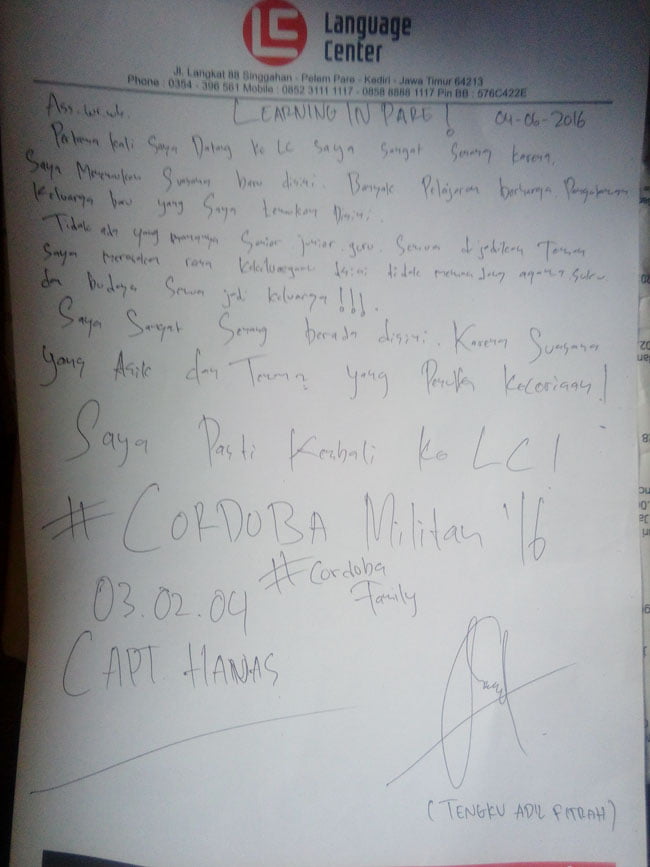 LC Language
Center
Jl. Langkat 88 Singgahan - Pelem Pare - Kediri - Jawa Timur 64213
Phone : 0354 - 396 561 Mobile : 0852 3111 1117 - 0858 8888 1117 Pin BB : 576C422E
Ass. wr. wb.
LEARNING IN PARE!
04-06-2016
Pertama kali Saya Datang ke LC saya sangat Senang karena,
Saya Menemukan Suasana baru disini. Banyak Pelajaran berharga. Pengalaman
keluarga baru yang Saya temukan Disini.
Tidak ada yang namanya Senior, junior, guru. Semua dijadikan Teman
Saya merasakan rasa kekeluargaan disini tidak memandang agama, suku
dan budaya Semua jadi keluarga!!!.
Saya Sangat Senang berada disini. Karena Suasana
yang Asik dan Teman yang Penuh keceriaan!
Saya Pasti Kembali ko LC!
# CORDOBA Militan '16
03.02.04
#Cordoba
Family
CAPT. HANAS
(TENGKU ADIL FITRAH)